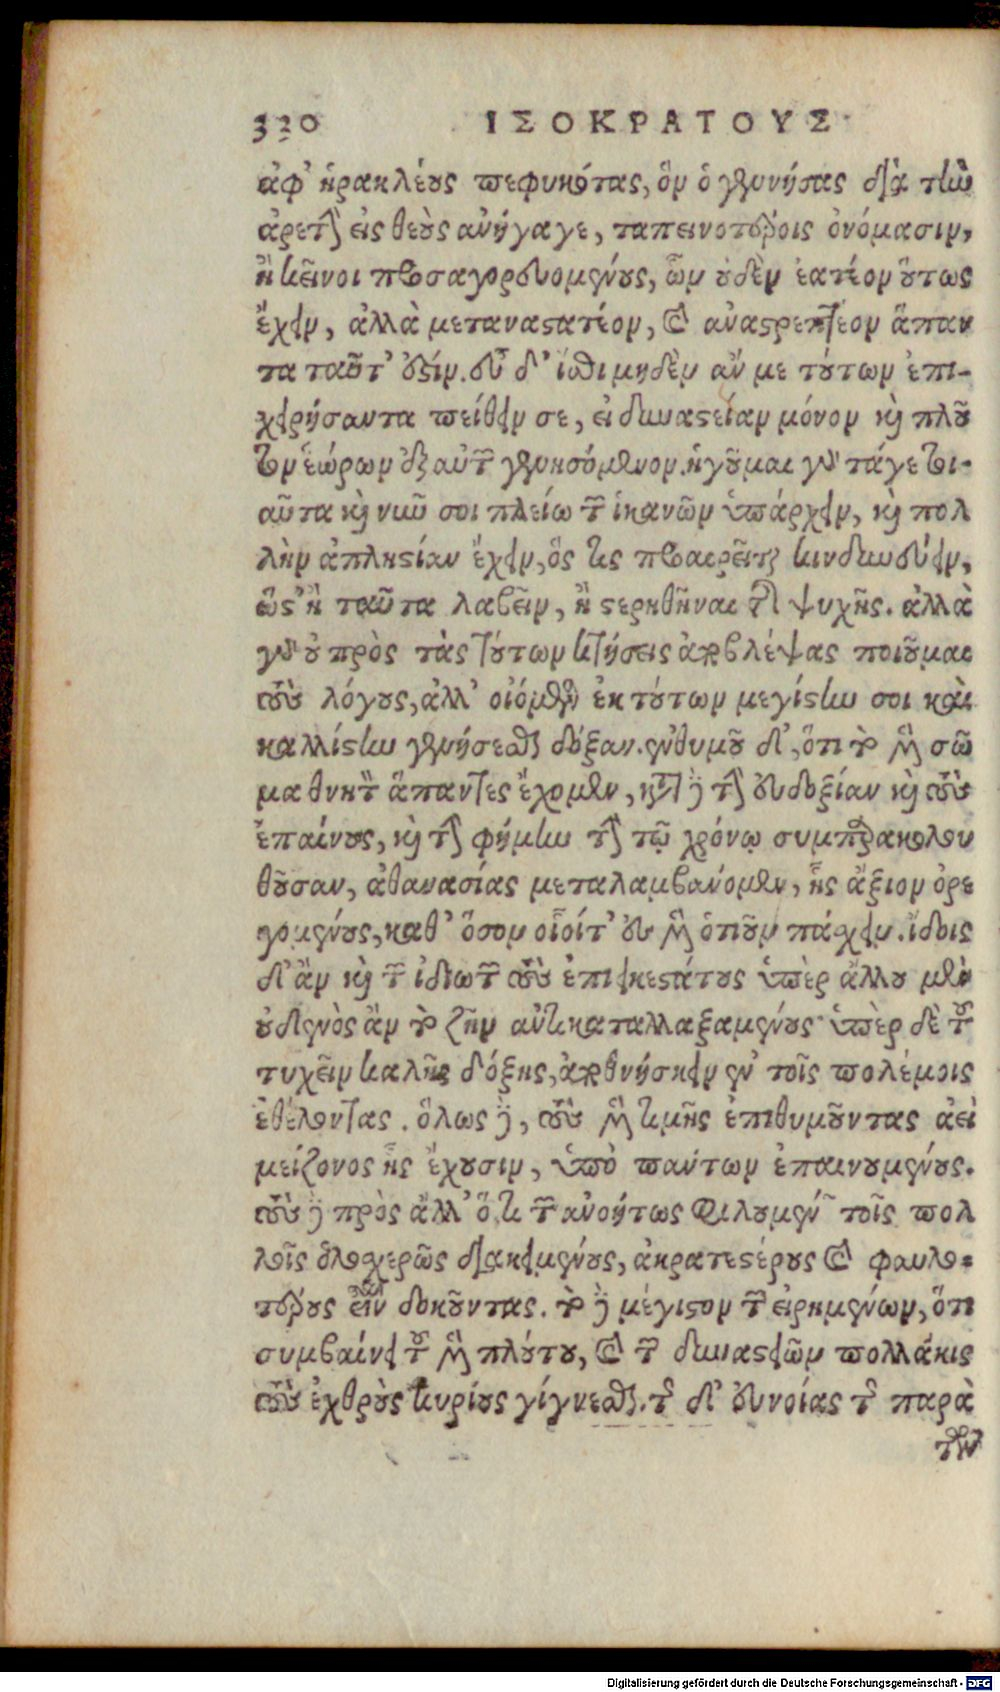 320 ΙΣΟΚΡΑΤΟΥΣ
ἀφ' ἡρακλέους πεφυκότας, ὃν ὁ γεννήσας διὰ τὴν
ἀρετὴν εἰς θεοὺς ἀνήγαγε, ταπεινοτέροις ὀνόμασιν,
ἢ κεῖνοι προσαγορευομένους, ὧν οὐδὲν ἐατέον οὕτως
ἔχειν, ἀλλὰ μεταναστατέον, καὶ ἀναστρεπτέον ἅπαν
τα ταῦτ' ἐστίν. σὺ δ' ἴσθι μηδὲν ἄν με τούτων ἐπι-
χειρήσαντα πείθειν σε, εἰ δυναστείαν μόνον καὶ πλοῦ
τον ἑώρων ἐξ αὐτῶν γενησόμενον. ἡγοῦμαι γὰρ τάγε τοι-
αῦτα καὶ νῦν σοι πλείω τῶν ἱκανῶν ὑπάρχειν, καὶ πολ
λὴν ἀπληστίαν ἔχειν, ὅς τις προαιρεῖται κινδυνεύειν,
ὥστ' ἢ ταῦτα λαβεῖν, ἢ στερηθῆναι τῆς ψυχῆς. ἀλλὰ
γὰρ οὐ πρὸς τὰς τούτων κτήσεις ἀποβλέψας ποιοῦμαι
τοὺς λόγους, ἀλλ' οἰόμενος ἐκ τούτων μεγίστην σοι καὶ
καλλίστην γενήσεσθαι δόξαν. ἐνθυμοῦ δ', ὅτι τὸ μὲν σῶ
μα θνητὸν ἅπαντες ἔχομεν, κατὰ δὲ τὴν εὐδοξίαν καὶ τοὺς
ἐπαίνους, καὶ τὴν φήμην τὴν τῷ χρόνῳ συμπαρακολου
θοῦσαν, ἀθανασίας μεταλαμβάνομεν, ἧς ἄξιον ὀρε
γομένους, καθ' ὅσον οἷοίτ' ἐσμὲν ὁτιοῦν πάσχειν. ἴδοις
δ' ἂν καὶ τῶν ἰδιωτῶν τοὺς ἐπιεικεστάτους ὑπὲρ ἄλλου μὲν
οὐδενὸς ἂν τὸ ζῆν ἀντικαταλλαξαμένους· ὑπὲρ δὲ τοῦ
τυχεῖν καλῆς δόξης, ἀποθνήσκειν ἐν τοῖς πολέμοις
ἐθέλοντας. ὅλως δὲ, τοὺς μὲν τιμῆς ἐπιθυμοῦντας ἀεὶ
μείζονος ἧς ἔχουσιν, ὑπὸ πάντων ἐπαινουμένους.
τοὺς δὲ πρὸς ἄλλ' ὅ, τι τῶν ἀνοήτως φιλουμένων τοῖς πολ
λοῖς ὁλοσχερῶς διακειμένους, ἀκρατεστέρους καὶ φαυλο-
τέρους εἶναι δοκοῦντας. τὸ δὲ μέγιστον τῶν εἰρημένων, ὅτι
συμβαίνει τοῦ μὲν πλούτου, καὶ τῶν δυναστειῶν πολλάκις
τοὺς ἐχθροὺς κυρίους γίγνεσθαι. τῆς δ' εὐνοίας τῆς παρὰ
τῶν
Digitalisierung gefördert durch die Deutsche Forschungsgemeinschaft - DFG